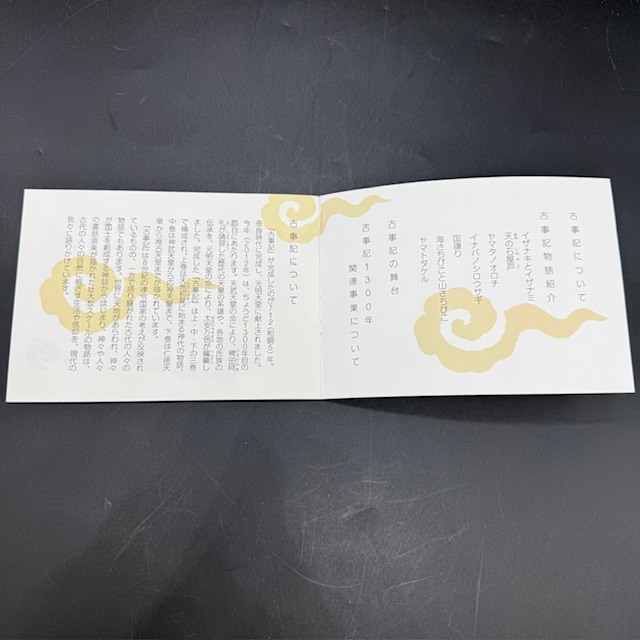 古事記について
古事記物語紹介
イザナキとイザナミ
天の石屋戸
ヤマタノオロチ
イナバノシロウサギ
国譲り
海さちびこと山さちびこ
ヤマトタケル
古事記の舞台
古事記1300年
関連事業について
古事記について
『古事記』が完成したのが712(和銅5)年。
奈良時代に完成し、元明天皇に献上されました。
今年(2012年)は、ちょうど1300年目の
節目にあたります。天武天皇の命により、稗田阿
礼が誦習した歴代の天皇の系譜や、各地の氏族の
伝承を、元明天皇の命により、太安万侶が編纂し
ました。『古事記』は上・中・下の三巻
で構成され、
中巻は神武天皇から応神天皇まで、下巻は仁徳天
皇から推古天皇までが描かれています。
『古事記』は8世紀の律令国家の考えが反映され
ているものの、一方で語り継がれた古代の人々の
物語でもあります。
が国土を創成する神話からはじまり、神々や人々
の喜怒哀楽が描かれた壮大なスケールの物語は、
古代の人々の自然に根ざす営みや信仰を、現代の
我々に語りかけています。